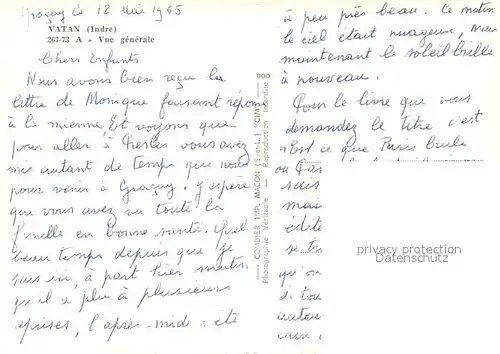 Graçay le 18 Mai 1965
VATAN (Indre)
267-73 A - Vue générale
Chers Enfants
Nous avons bien reçu la
lettre de Monique faisant réponse
à la mienne, Et voyons que
pour aller à Presles vous avez
mis autant de temps que nous
pour venir à Graçay. J'espère
que vous avez vu toute la
famille en bonne santé. Quel
beau temps depuis que je
suis ici, à part hier matin
qu'il a plu à plusieurs
reprises, l'après-midi a été
COMBIER IMP. MACON (S.-et-L.) "CIM"
Photographie Véritable - Reproduction Interdite
à peu près beau. Ce matin
le ciel était nuageux, mais
maintenant le soleil brille
à nouveau.
Pour le livre que vous
demandez le titre c'est
"Est ce que Paris brule
ou Par
sais
mais
édité
se tro
qu'on
si tou
autou
car
privacy protection
Datenschutz